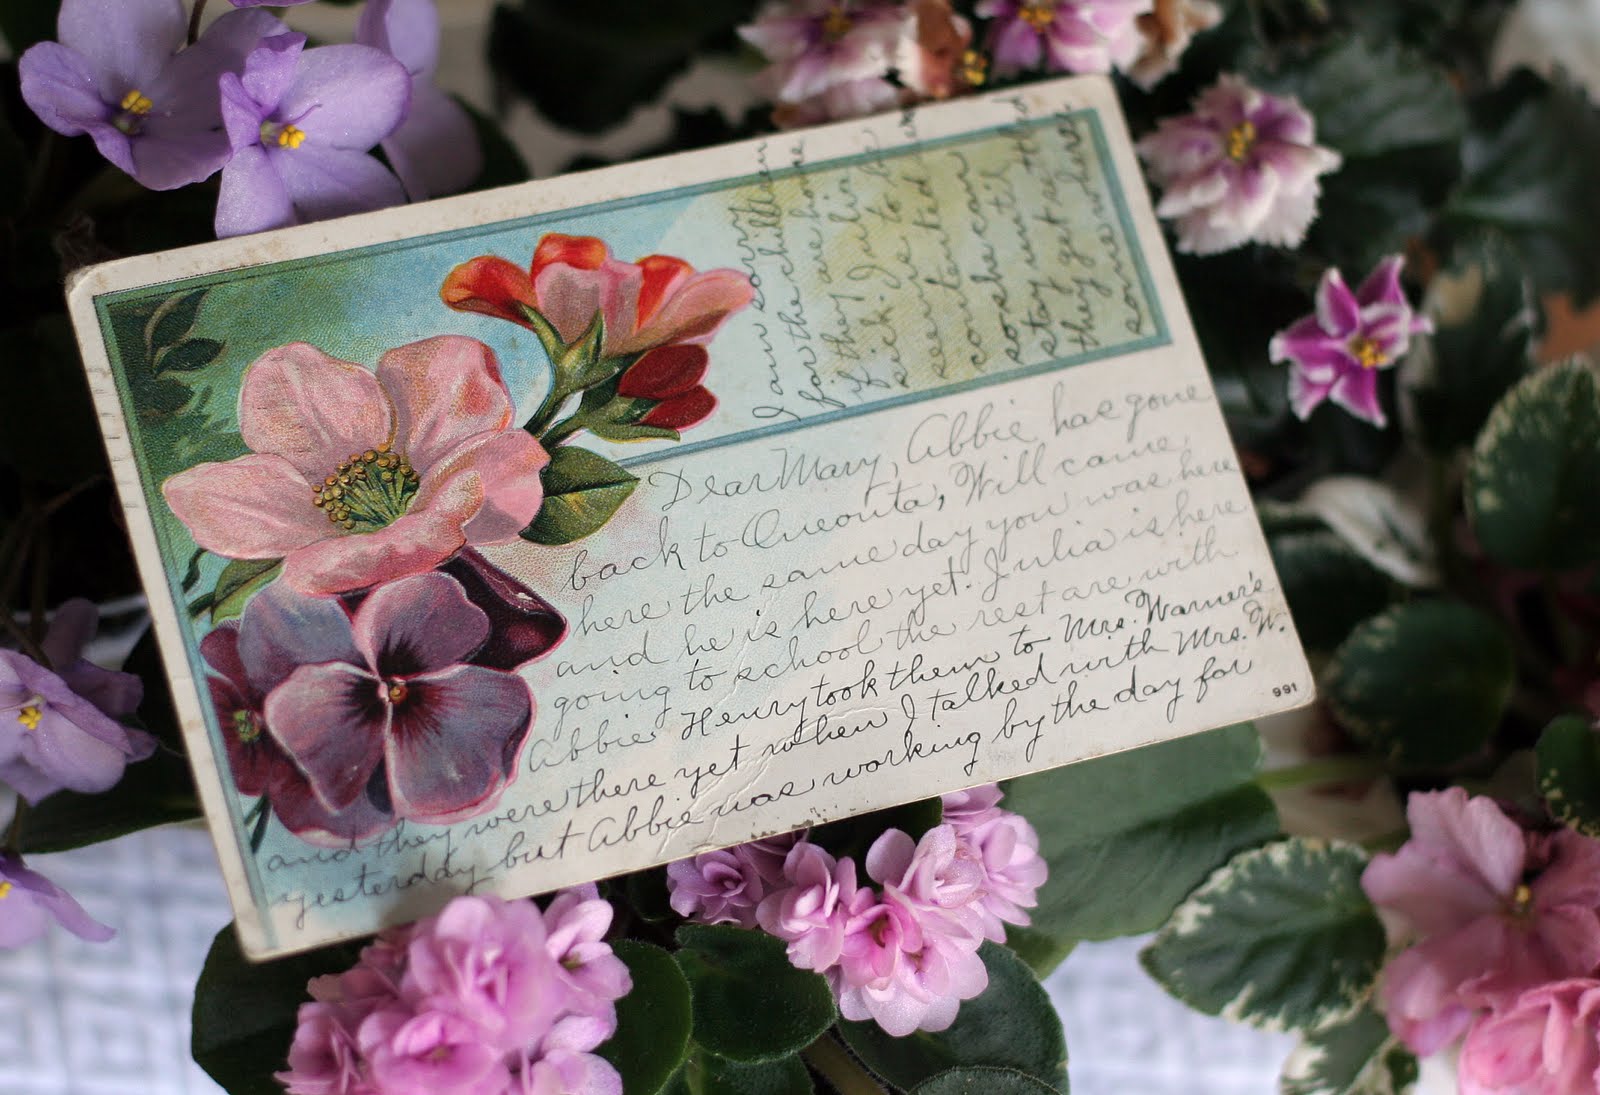 Dear Mary, Abbie has gone
back to Oneonta, Will came
here the same day you was here
and he is here yet. Julia is here
going to school the rest are with
Abbie. Henry took them to Mrs. Warner's
and they were there yet when I talked with Mrs. W.
yesterday but Abbie was working by the day for
991
I am sorry
for the children
if they are home
sick. Julia
seems to be
contented
so she can
stay until
they get settled
somewhere